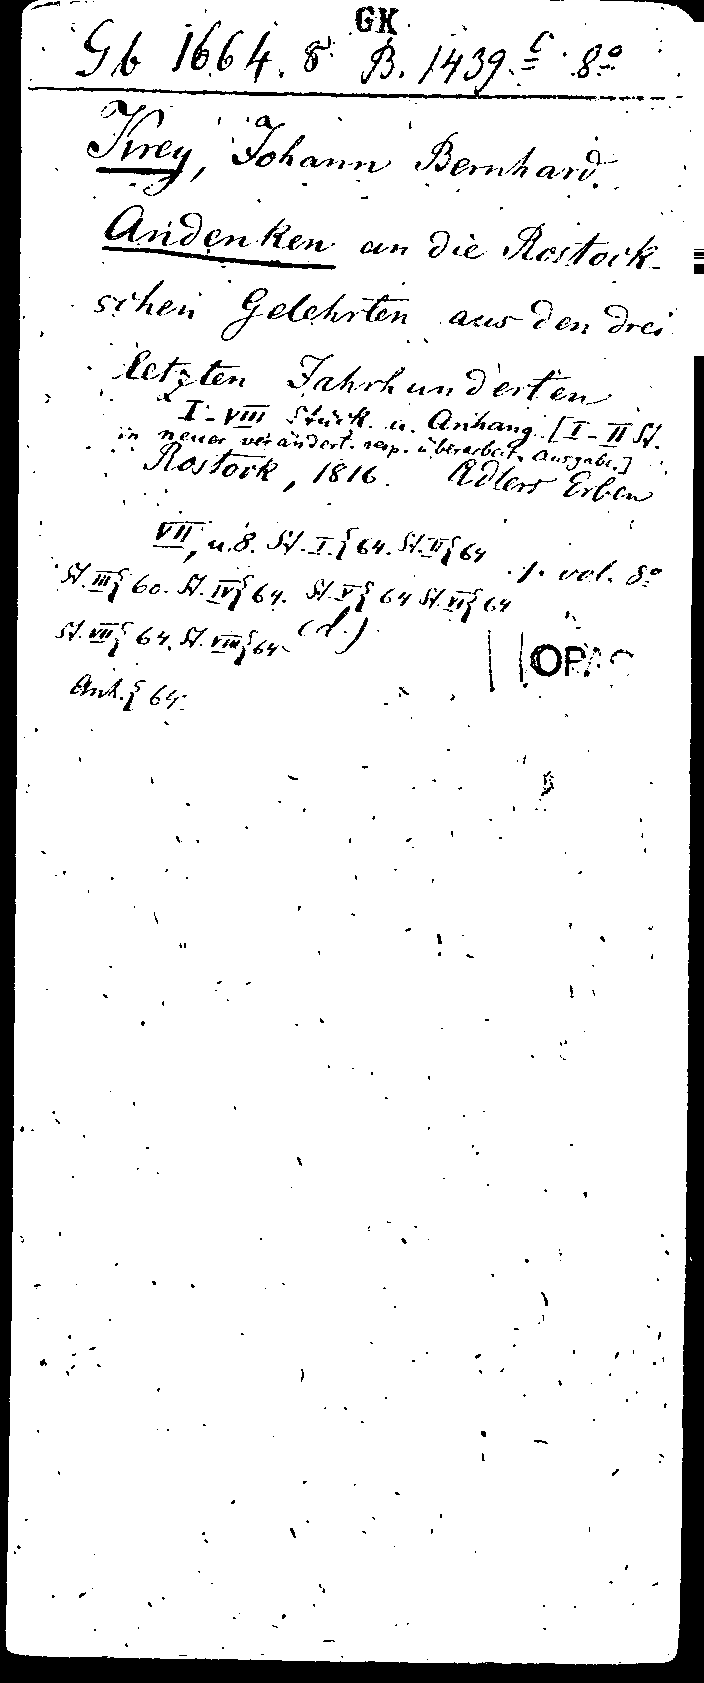 GK
Gb 1664. 8 B. 1439. c. 8º
Krey, Johann Bernhard.
Andenken an die Rostock-
schen Gelehrten aus den drei
letzten Jahrhunderten
I-VIII Stück. u. Anhang. [I-II St.
in neuer verändert. resp. überarbeit. Ausgabe.]
Rostock, 1816. Adlers Erben
VII, u. 8. St. I. { 64. St. II { 64
St. III { 60. St. IV { 64. St. V { 64 St. VI { 64 1. vol. 8º
St. VII { 64. St. VIII { 64 (d.)
Anh. { 64.
OPAC